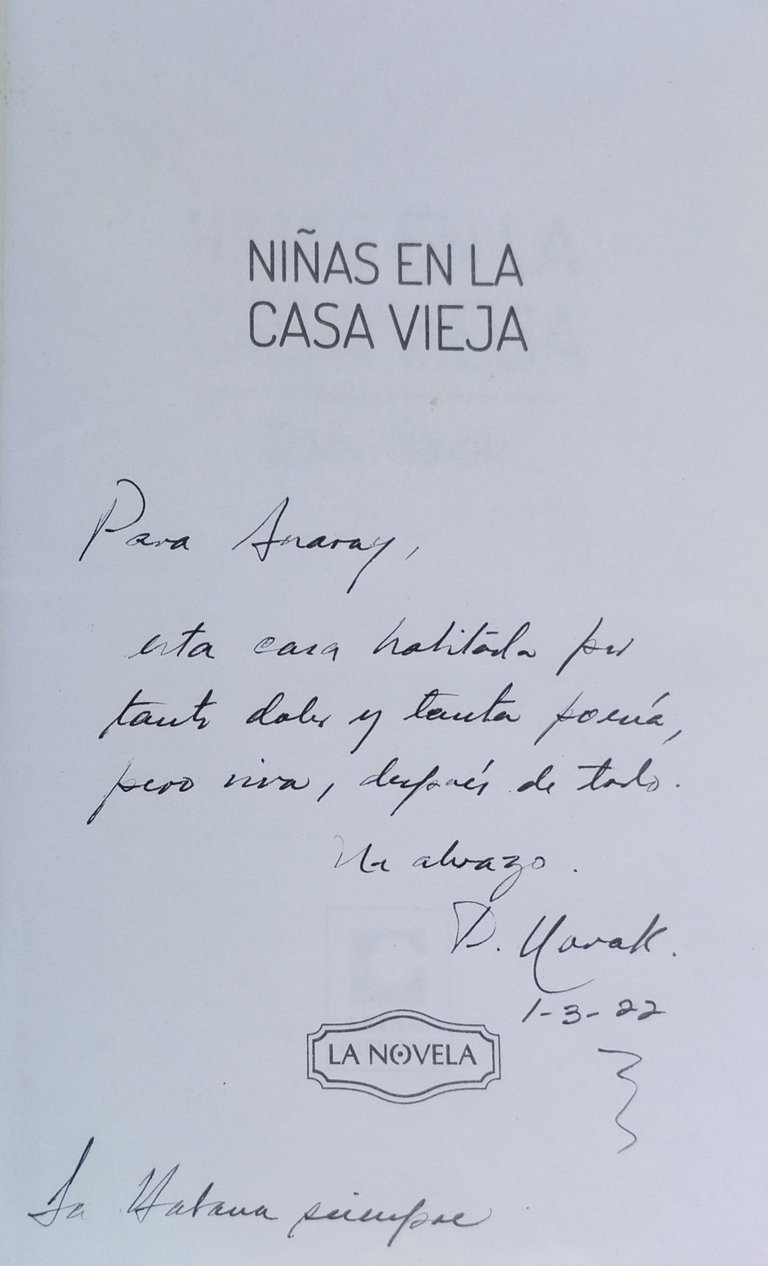 NIÑAS EN LA
CASA VIEJA
Para Anaray,
esta casa habitada por
tanto dolor y tanta poesía,
pero viva, después de todo.
Un abrazo.
D. Novak.
1-3-22
LA NOVELA
La Habana siempre